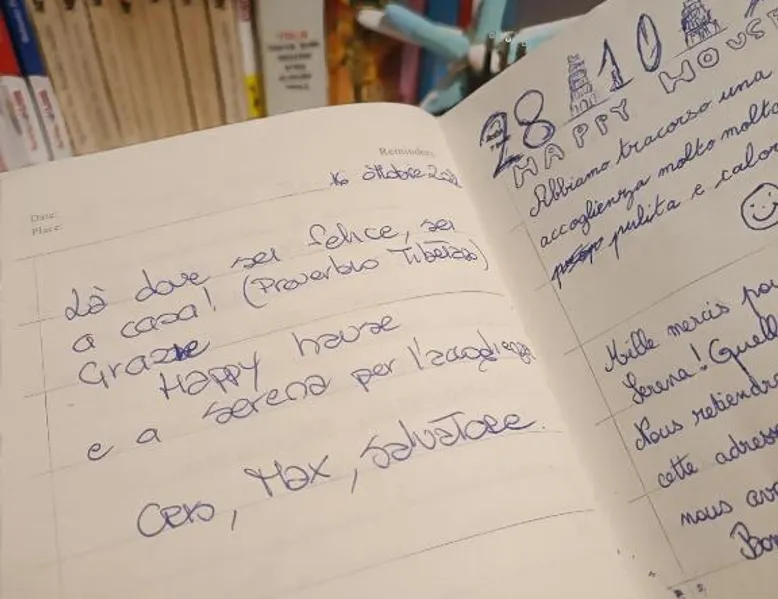 Reminders
Date:
Place:
16 ottobre
Là dove sei felice, sei
a casa! (Proverbio Tibetano)
Grazie
Happy house
e a Serena per l'accoglienza
Ciro, Max, Salvatore.
28 10
HAPPY HOUSE
Abbiamo tracorso una
accoglienza molto molto
pulita e calor
Mille mercis pou
Serena! Quell
Nous retiendro
cette adress
nous avo
Bon